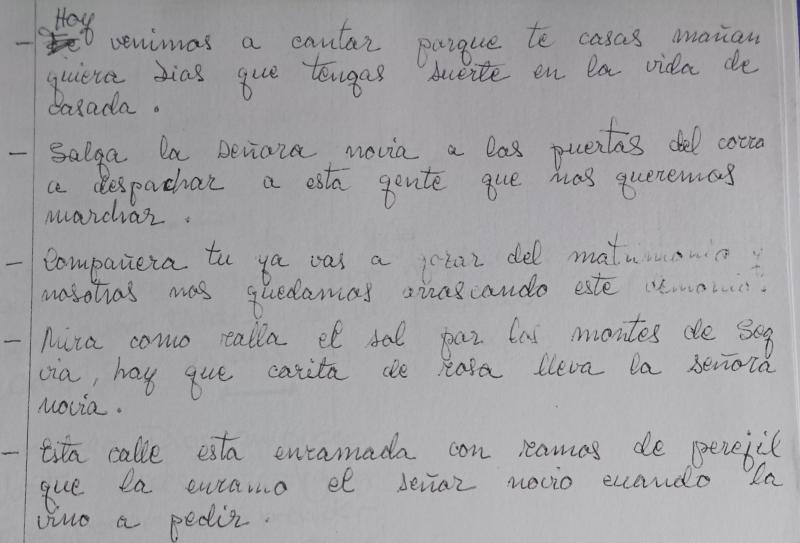 Hoy
- venimos a cantar porque te casas mañan
quiera Dios que tengas suerte en la vida de
casada.
- Salga la señora novia a las puertas del corra
a despachar a esta gente que nos queremos
marchar.
- Compañera tu ya vas a gozar del matrimonio y
nosotras nos quedamos arrascando este demonio.
- Mira como ralla el sol por los montes de Seg
via, hay que carita de rosa lleva la señora
novia.
- Esta calle esta enramada con ramos de perejil
que la enramo el señor novio cuando la
vino a pedir.